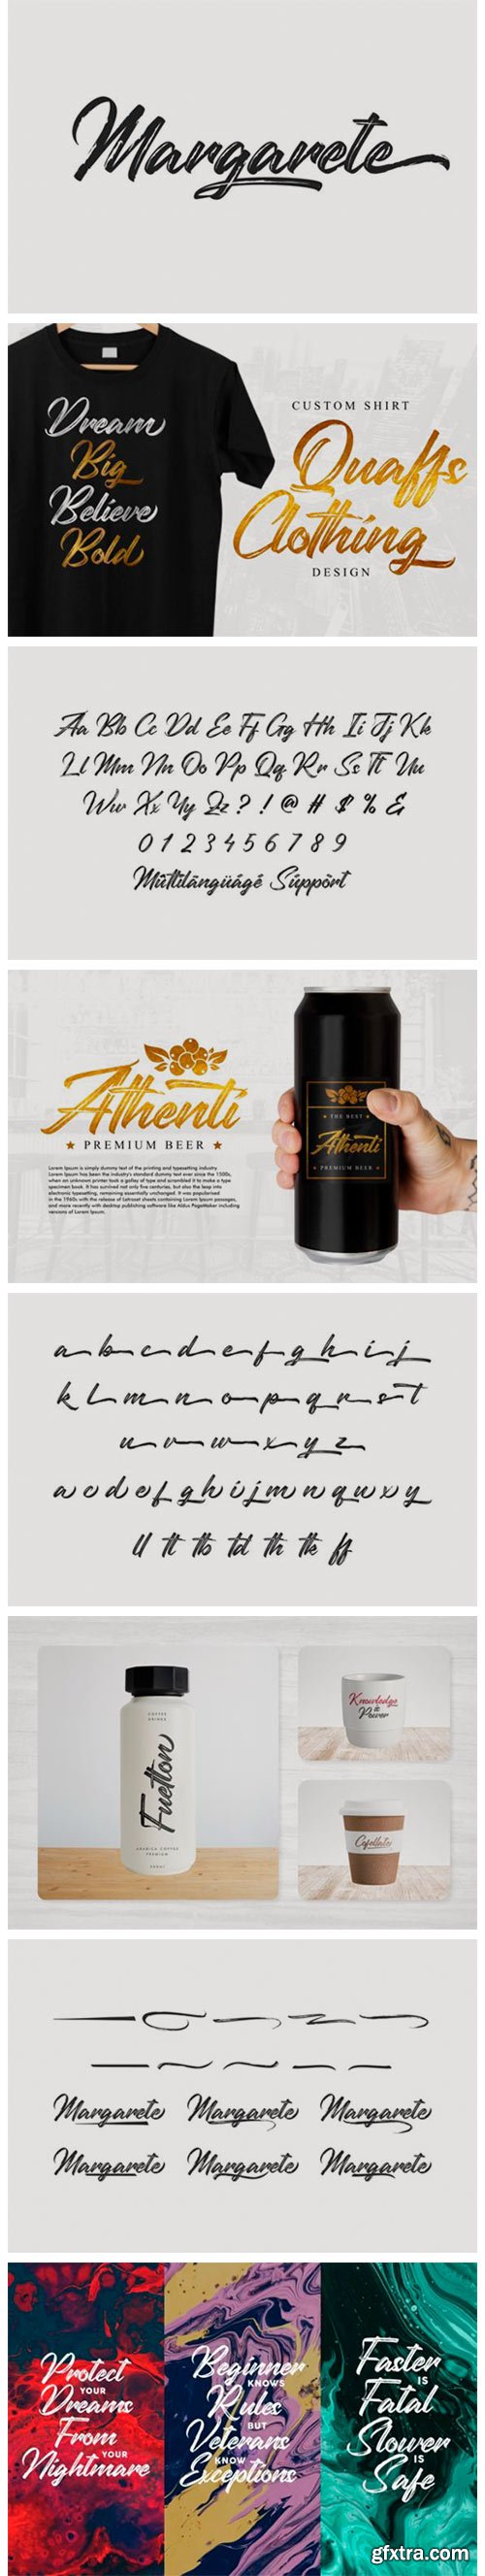 Margarete
Dream
Big
Believe
Bold
CUSTOM SHIRT
Quaffs
Clothing
DESIGN
Aa Bb Cc Dd Ee Ff Gg Hh Ii Jj Kk
Ll Mm Nn Oo Pp Qq Rr Ss Tt Uu
Ww Xx Yy Zz ? ! @ # $ % &
0 1 2 3 4 5 6 7 8 9
Müttilãngüágé Súppört
Athenti
★ PREMIUM BEER ★
Lorem Ipsum is simply dummy text of the printing and typesetting industry.
Lorem Ipsum has been the industry's standard dummy text ever since the 1500s,
when an unknown printer took a galley of type and scrambled it to make a type
specimen book. It has survived not only five centuries, but also the leap into
electronic typesetting, remaining essentially unchanged. It was popularised
in the 1960s with the release of Letraset sheets containing Lorem Ipsum passages,
and more recently with desktop publishing software like Aldus PageMaker including
versions of Lorem Ipsum.
★ THE BEST ★
Athenti
★ PREMIUM BEER ★
a b c d e f g h i j
k l m n o p q r s t
u v w x y z
a c d e f g h i j m n q u w x y
ll tt tb td th tk ff
COFFEE
DRINKS
Fuelton
ARABICA COFFEE
PREMIUM
Knowledge
is
Power
Margarete Margarete Margarete
Margarete Margarete Margarete
Protect
YOUR
Dreams
From
YOUR
Nightmare
Beginner
KNOWS
Rules
BUT
Veterans
KNOW
Exceptions
Faster
IS
Fatal
Slower
IS
Safe
gfxtra.com